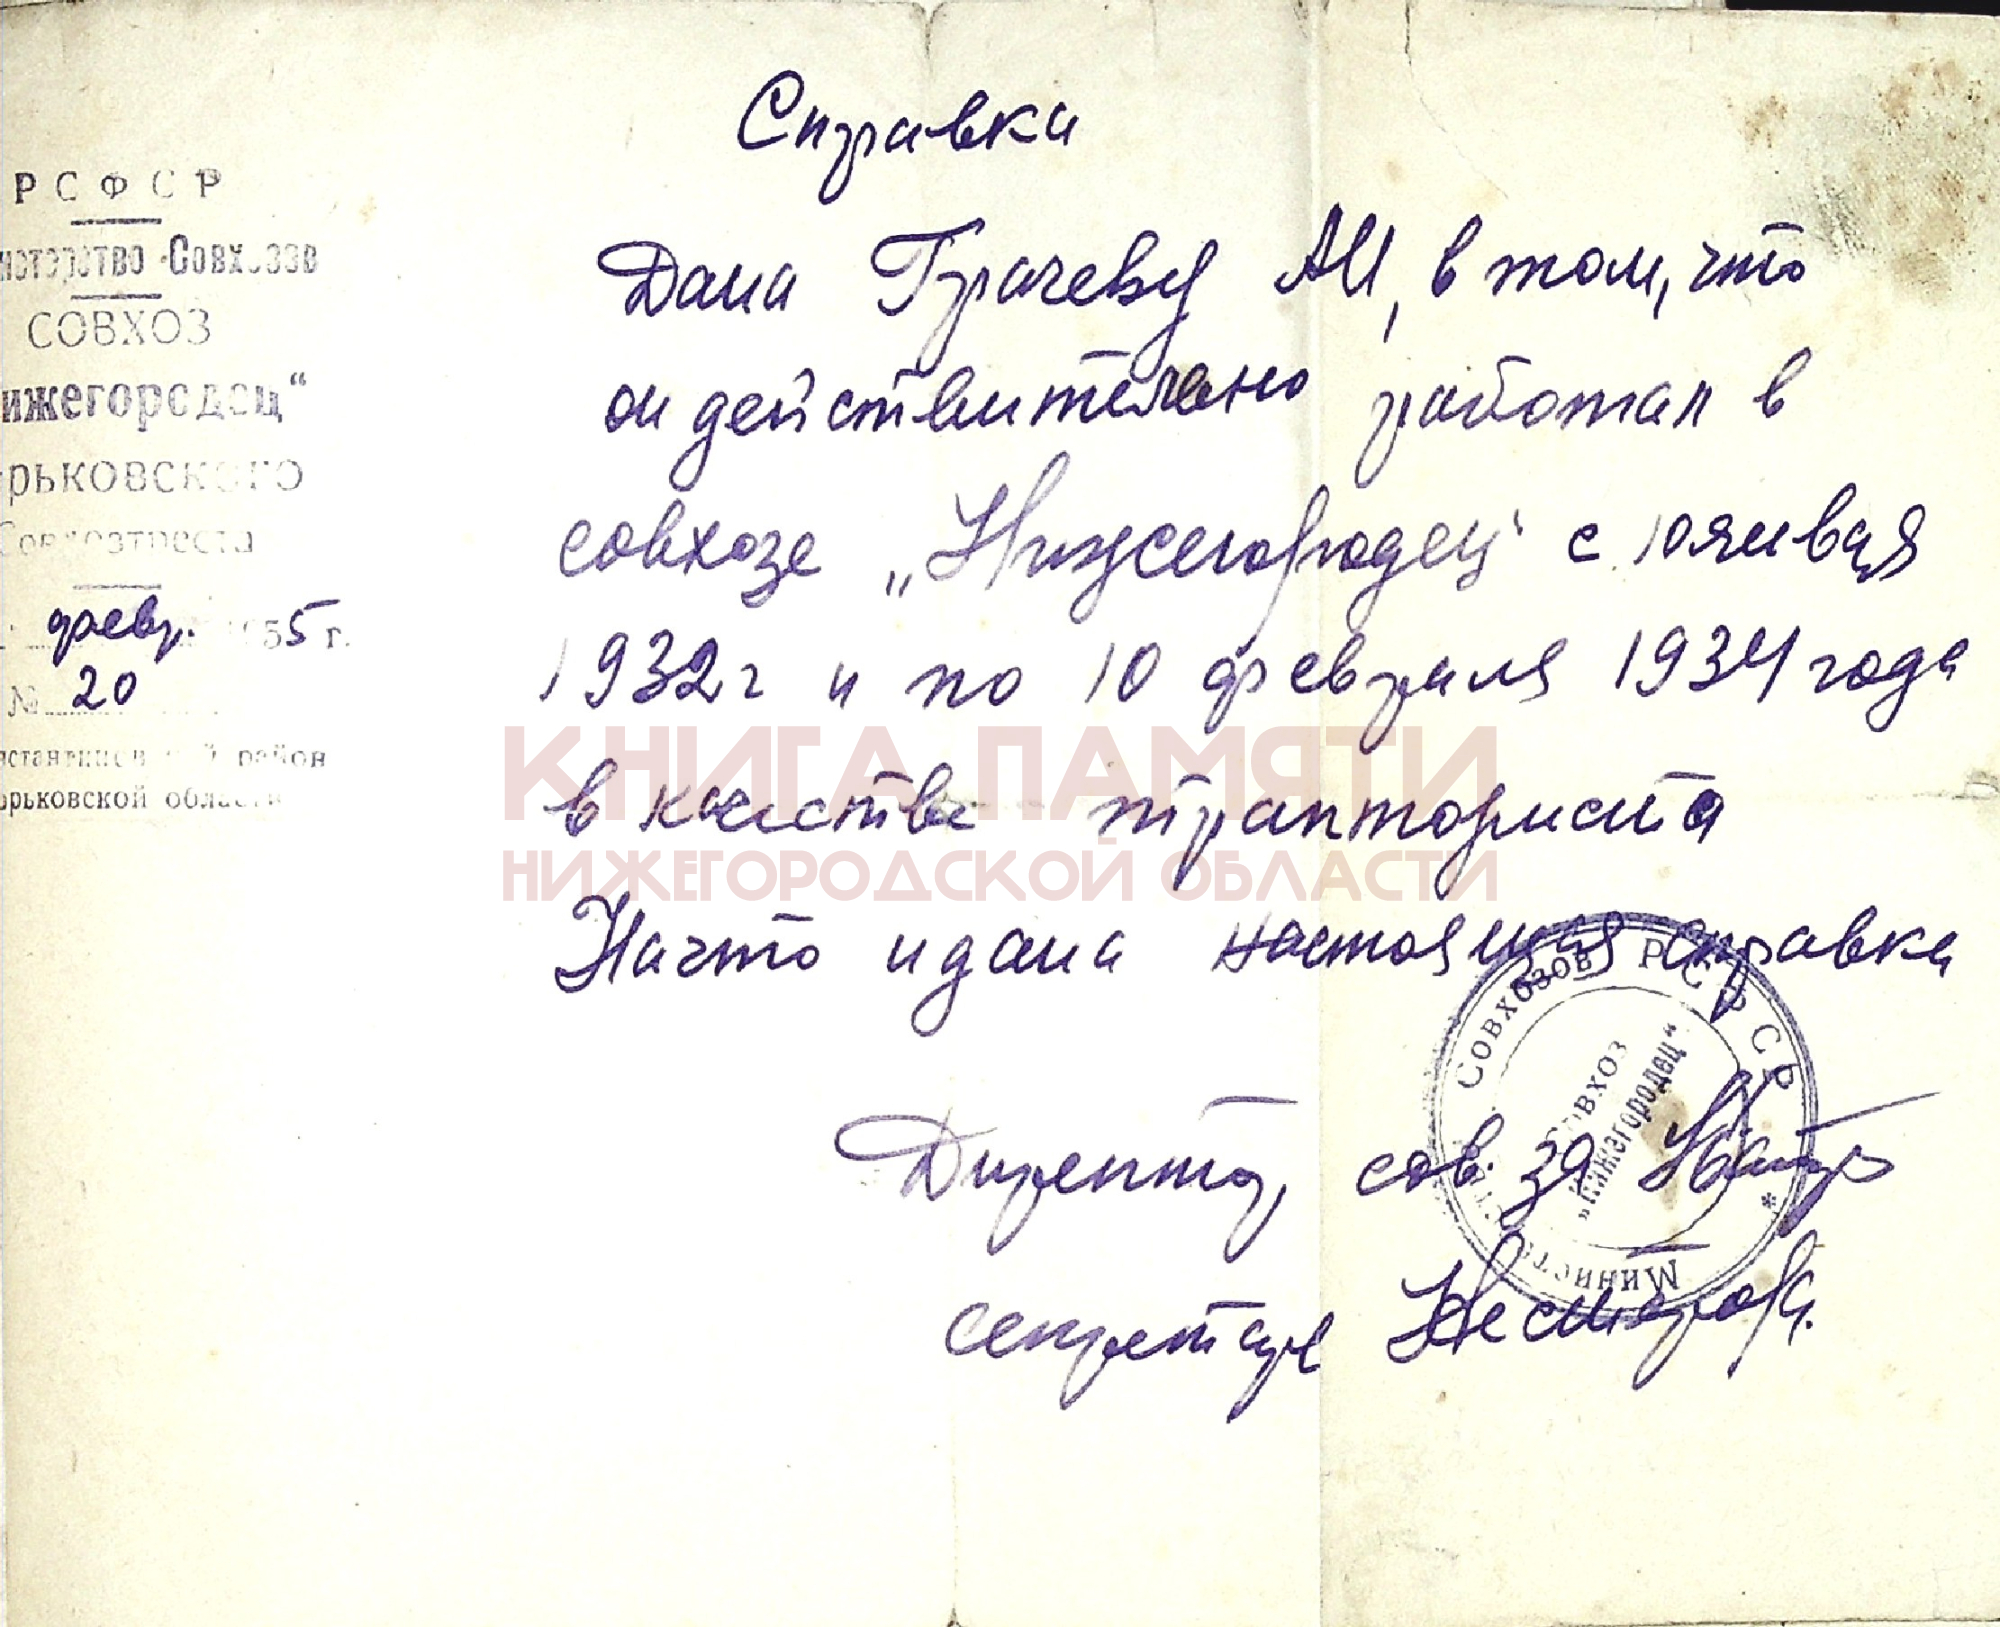 РСФСР
нистерство Совхозов
СОВХОЗ
ижегородец“
рьковского
Совхозтреста
февр. 1955 г.
№ 20
нстантиновский район
орьковской области
Справка
Дана Грачеву АИ, в том, что
он действително работал в
совхозе „Нижегородец“ с 10 января
1932 г и по 10 февраля 1934 года
в качестве тракториста
На что и дана настоящая справка
Директор сов. за
секретарь Нестерова
КНИГА ПАМЯТИ
НИЖЕГОРОДСКОЙ ОБЛАСТИ
Совхозов РСФСР
Совхоз
„Нижегородец“